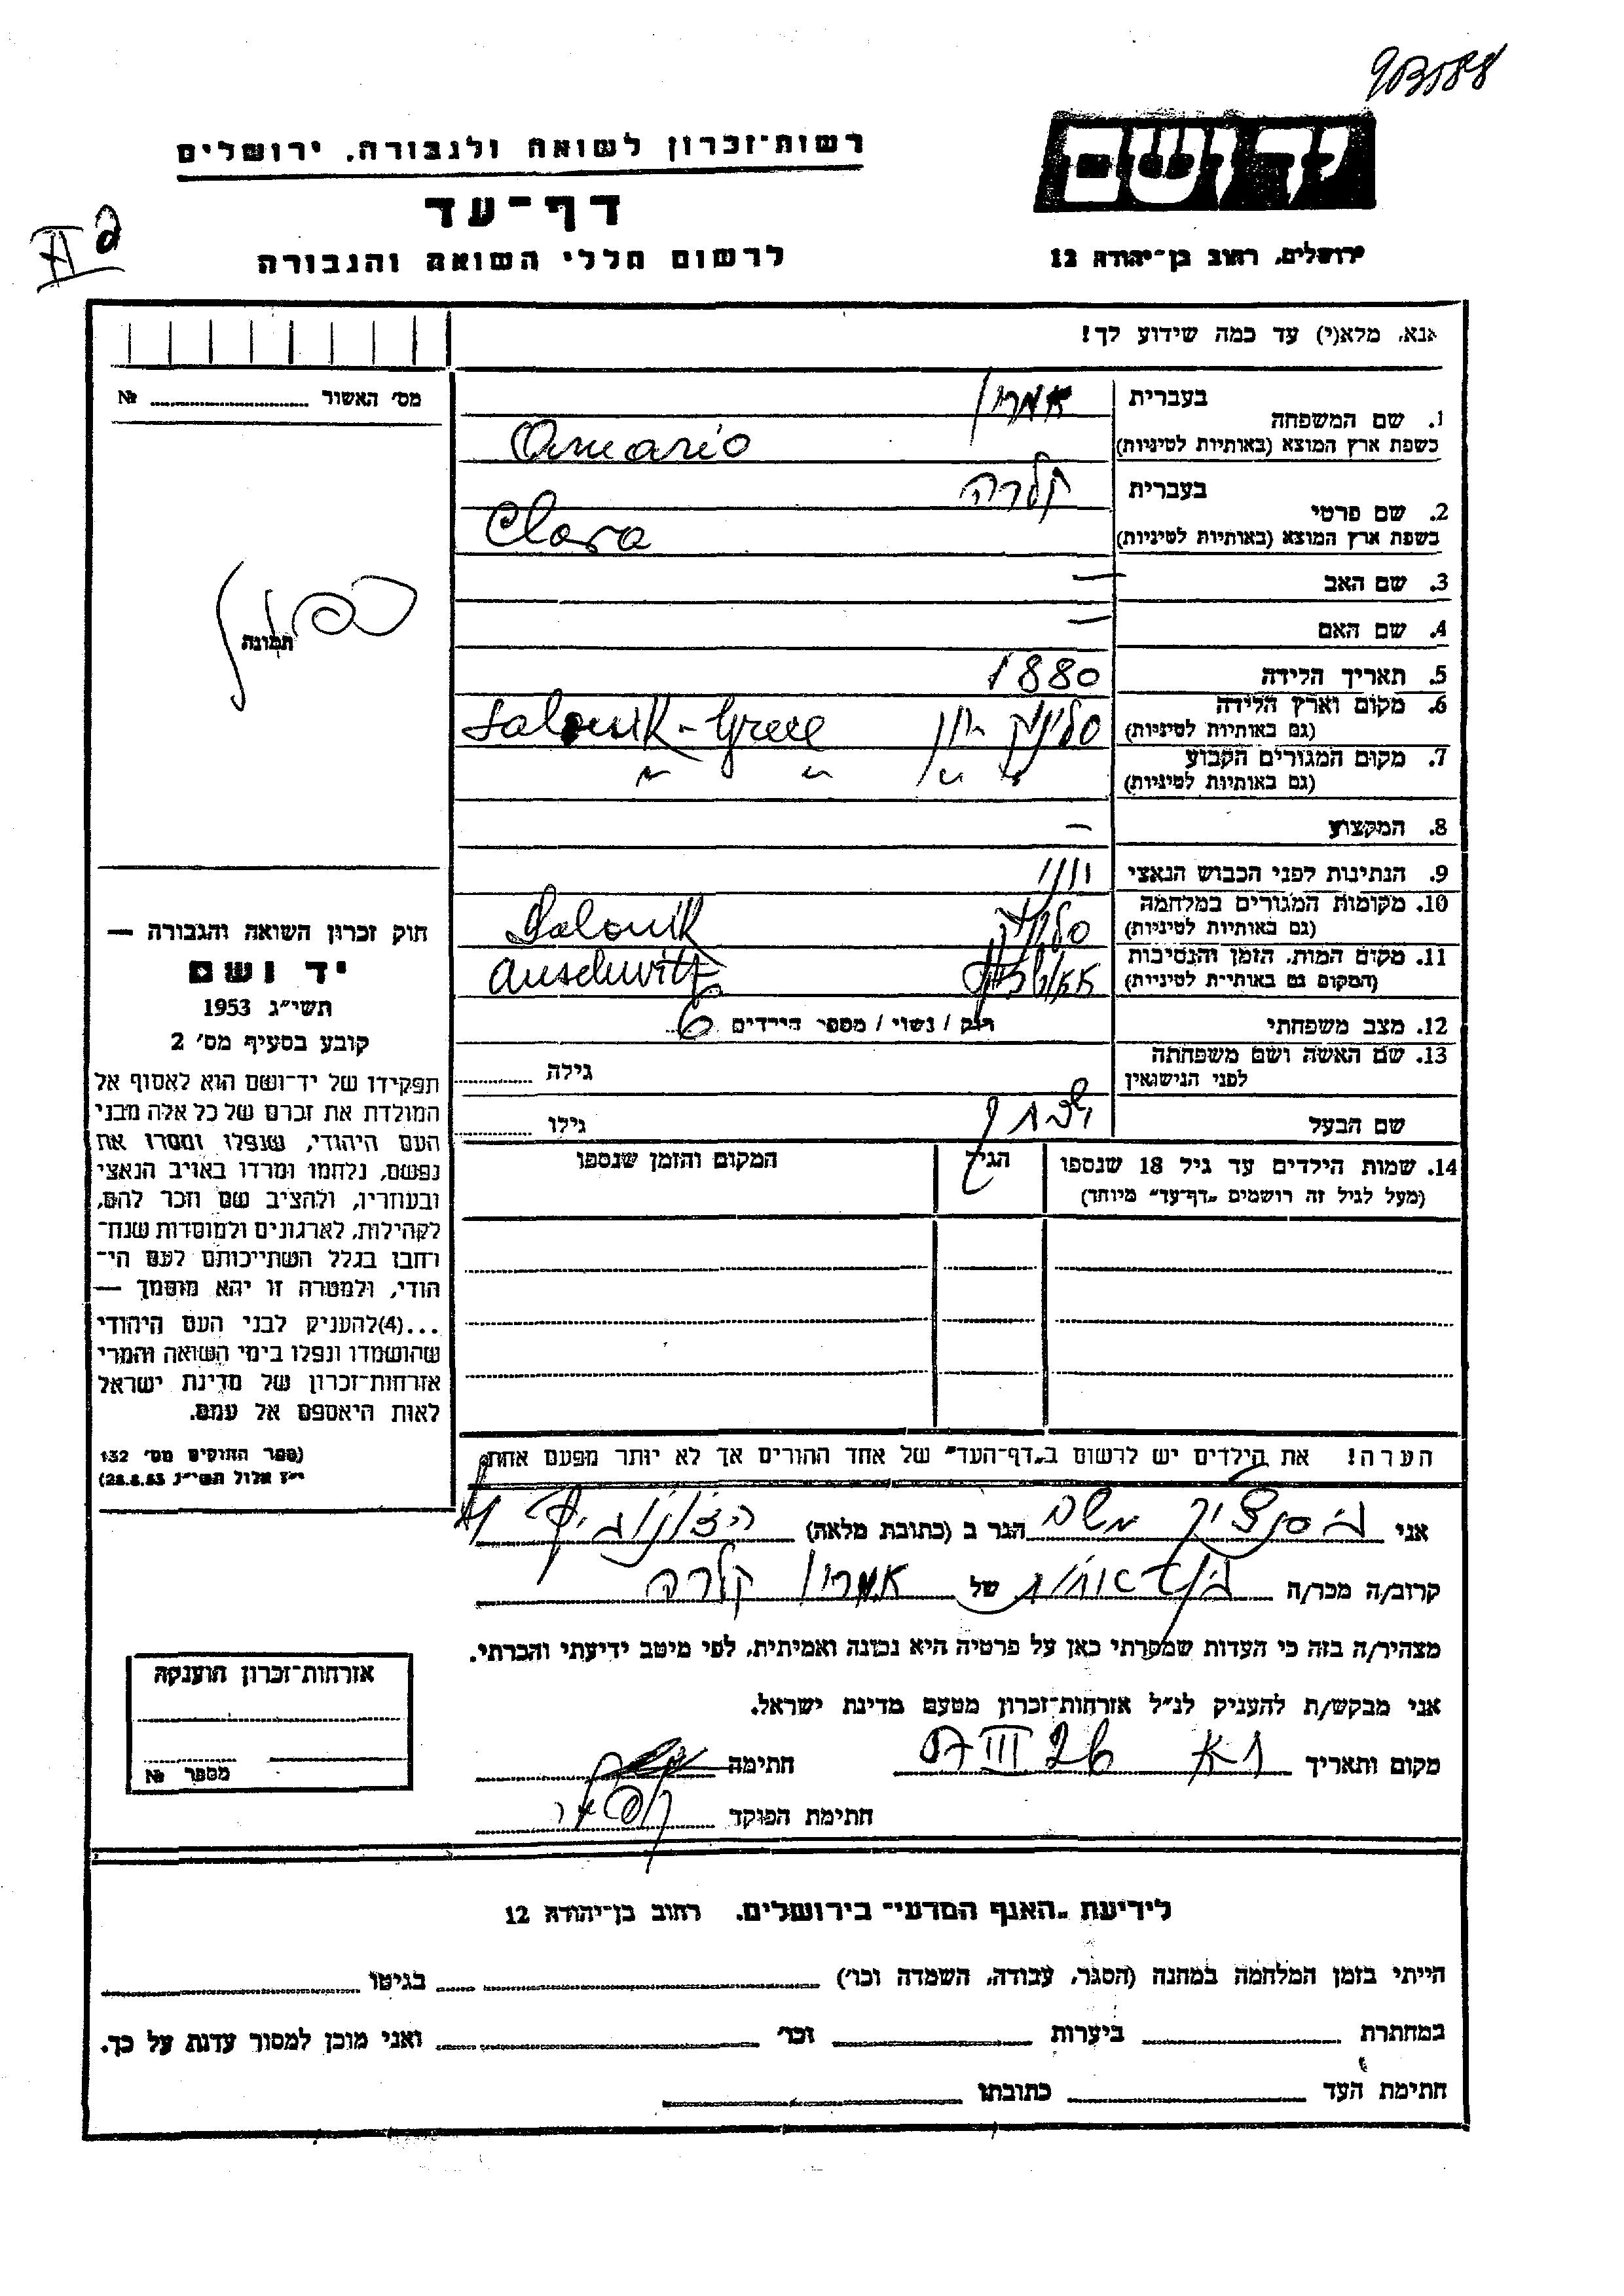 903188
יד ושם
רשות־זכרון לשואה ולגבורה, ירושלים
דף־עד
לרשום חללי השואה והגבורה
ירושלים, רחוב בן־יהודה 12
אנא, מלא(י) עד כמה שידוע לך!
מס' האשור № 
1. שם המשפחה
בעברית
בשפת ארץ המוצא (באותיות לטיניות)
Amario
2. שם פרטי
בעברית קלרה
בשפת ארץ המוצא (באותיות לטיניות)
Clara
3. שם האב —
4. שם האם —
תמונה
5. תאריך הלידה 1880
6. מקום וארץ הלידה
(גם באותיות לטיניות)
סלוניק יוון Salonik - Greece
7. מקום המגורים הקבוע
(גם באותיות לטיניות)
" " " "
8. המקצוע —
9. הנתינות לפני הכבוש הנאצי
10. מקומות המגורים במלחמה
(גם באותיות לטיניות)
סלוניק Salonik
11. מקום המות, הזמן והנסיבות
(המקום גם באותיות לטיניות)
Auschwitz
12. מצב משפחתי רווק / נשוי / מספר הילדים 6
13. שם האשה ושם משפחתה
לפני הנישואין
גילה
שם הבעל
גילו
14. שמות הילדים עד גיל 18 שנספו
(מעל לגיל זה רושמים "דף־עד" מיוחד)
הגיל
המקום והזמן שנספו
הערה! את הילדים יש לרשום ב"דף־העד" של אחד ההורים אך לא יותר מפעם אחת
חוק זכרון השואה והגבורה —
יד ושם
תשי"ג 1953
קובע בסעיף מס' 2
תפקידו של יד־ושם הוא לאסוף אל
המולדת את זכרם של כל אלה מבני
העם היהודי, שנפלו ומסרו את
נפשם, נלחמו ומרדו באויב הנאצי
ובעוזריו, ולהציב שם וזכר להם,
לקהילות, לארגונים ולמוסדות שנח־
רבו בגלל השתייכותם לעם הי־
הודי, ולמטרה זו יהא מוסמך —
...(4)להעניק לבני העם היהודי
שהושמדו ונפלו בימי השואה והמרי
אזרחות־זכרון של מדינת ישראל
לאות היאספם אל עמם.
(ספר החוקים מס' 132
י"ז אלול תשי"ג 28.8.53)
אני משה הגר ב (כתובת מלאה)
קרוב/ה מכר/ה של קלרה
מצהיר/ה בזה כי העדות שמסרתי כאן על פרטיה היא נכונה ואמיתית, לפי מיטב ידיעתי והכרתי.
אני מבקש/ת להעניק לנ"ל אזרחות־זכרון מטעם מדינת ישראל.
מקום ותאריך ת"א 26 III 57 חתימה
חתימת הפוקד
אזרחות־זכרון הוענקה
מספר №
לידיעת "האגף המדעי" בירושלים, רחוב בן־יהודה 12
הייתי בזמן המלחמה במחנה (הסגר, עבודה, השמדה וכו') בגיטו
במחתרת ביערות וכו' ואני מוכן למסור עדות על כך.
חתימת העד כתובתו